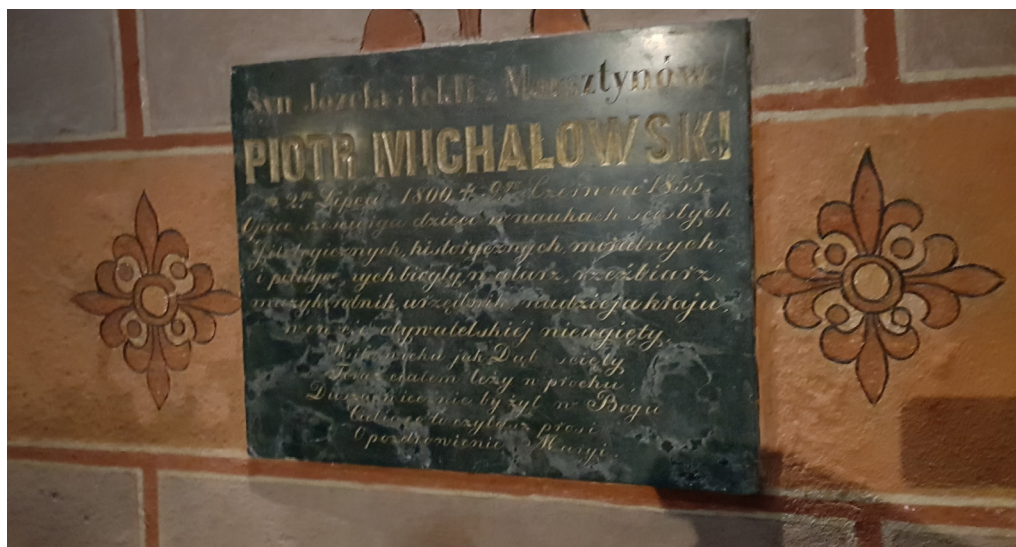 Syn Józefa i Tekli z Morsztynów
PIOTR MICHAŁOWSKI
* 2go Lipca 1800 ✝ 9go Czerwca 1855.
Ojciec dzieci w naukach ścisłych
filologicznych, historycznych, moralnych,
i politycznych biegły, malarz, rzeźbiarz,
muzyk, rolnik, urzędnik, nadzieja kraju,
w cnocie obywatelskiéj nieugięty,
W sile wieku jak Dąb ścięty
Teraz ciałem leży w prochu,
Duszą wiecznie by żył w Bogu
Ludzie to czytasz prosi
O pozdrowienie Maryi.